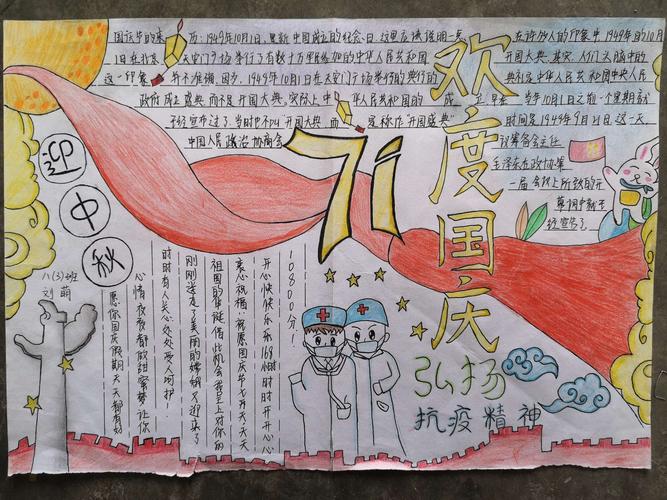 国庆节的来 历:1949年10月1日,是新中国成立的纪念日.这里应该说明一点. 在许多人的印象中,1949年的10月
1日在北京 天安门广场举行了有数十万军民参加的中华人民共和国 开国大典.其实,人们头脑中的
这一印象 并不准确.因为,1949年10月1日在天安门广场举行的典行的 典礼是中华人民共和国中央人民
政府成立盛典,而不是开国大典.实际上,中 华人民共和国的 成 立,早在 当年10月1日之前一个星期就
经宣布过了.当时也不叫"开国大典",而 是称作"开国盛典". 时间是1949年9月21日.这一天
中国人民政治协商会 议筹备会主任
毛泽东在政协第
一届会议上所致的开
幕词中就
经宣告了
71
欢度国庆
迎中秋
八(3)班
刘萌
愿你国庆假期天天都有好
心情夜夜都做甜蜜梦让你
时时有人关心处处受人呵护!
刚刚送走了美丽的嫦娥又迎来了
祖国的华诞借此机会我呈上对你的
衷心祝福:祝愿国庆节七天天天天
开心快快乐乐168时时时开开心心
10800分!
弘扬
抗疫精神